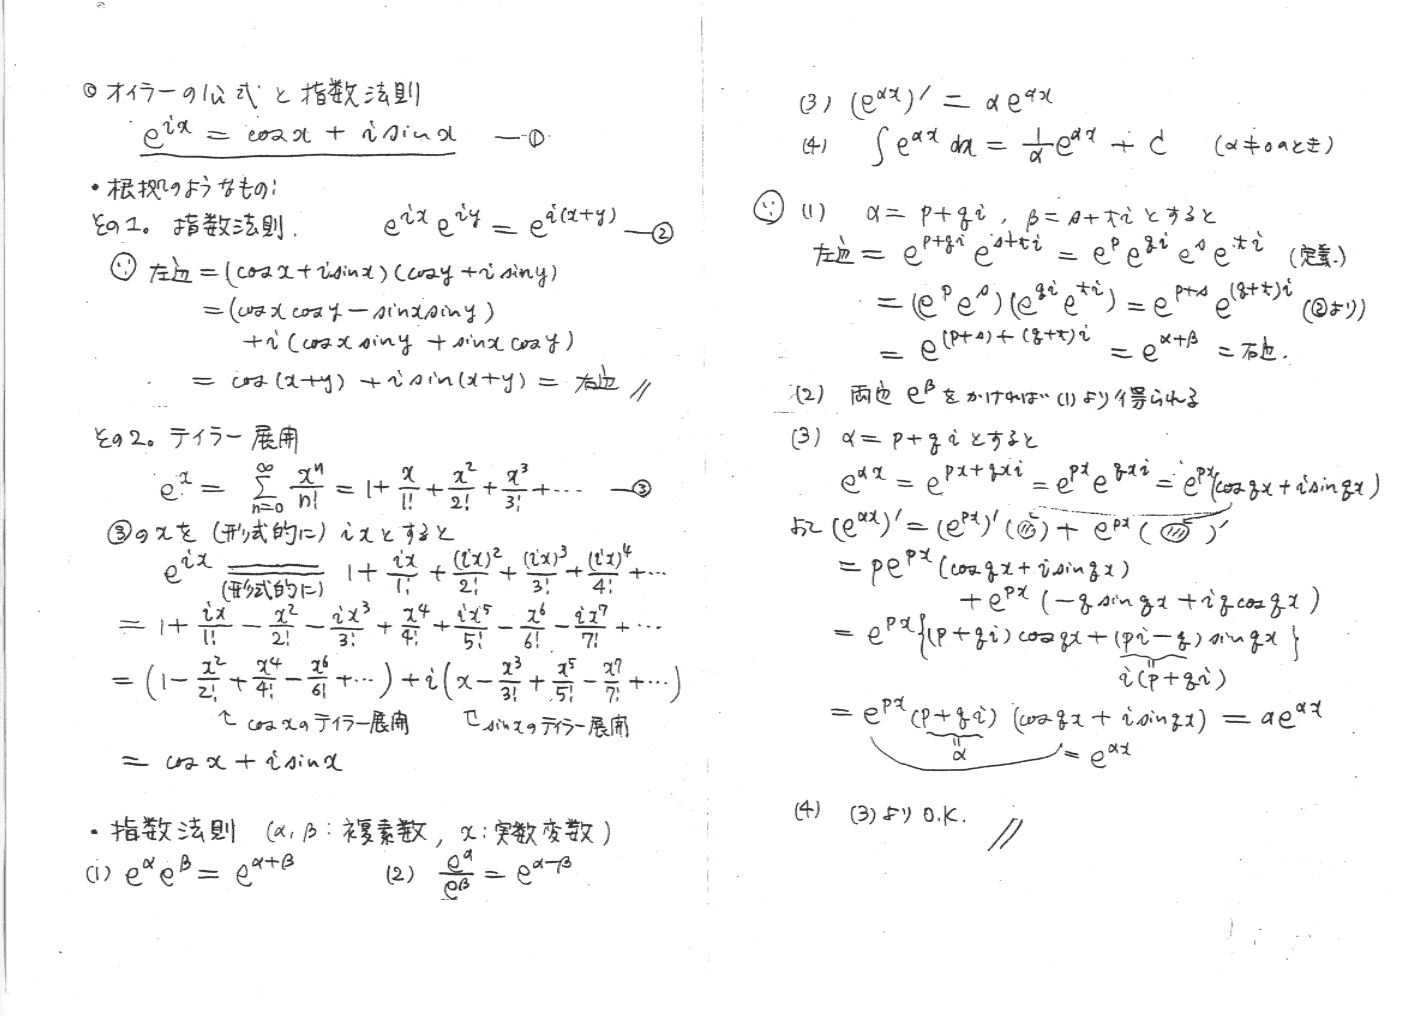 ◎ オイラーの公式と指数法則
e^{ix} = cos x + i sin x —①
・根拠のようなもの:
その1。指数法則. e^{ix} e^{iy} = e^{i(x+y)} —②
∵ 左辺 = (cos x + i sin x)(cos y + i sin y)
= (cos x cos y − sin x sin y)
+ i (cos x sin y + sin x cos y)
= cos (x+y) + i sin (x+y) = 右辺 //
その2。テイラー展開
e^x = Σ_{n=0}^{∞} x^n/n! = 1 + x/1! + x^2/2! + x^3/3! + ··· —③
③のxを (形式的に) ix とすると
e^{ix} = (形式的に) 1 + ix/1! + (ix)^2/2! + (ix)^3/3! + (ix)^4/4! + ···
= 1 + ix/1! − x^2/2! − ix^3/3! + x^4/4! + ix^5/5! − x^6/6! − ix^7/7! + ···
= (1 − x^2/2! + x^4/4! − x^6/6! + ···) + i(x − x^3/3! + x^5/5! − x^7/7! + ···)
↑ cos x のテイラー展開 ↑ sin x のテイラー展開
= cos x + i sin x
・指数法則 (α, β : 複素数, x : 実数変数)
(1) e^α e^β = e^{α+β} (2) e^α/e^β = e^{α−β}
(3) (e^{αx})' = α e^{αx}
(4) ∫ e^{αx} dx = 1/α e^{αx} + C (α≠0のとき)
∵ (1) α = p + qi, β = s + ti とすると
左辺 = e^{p+qi} e^{s+ti} = e^p e^{qi} e^s e^{ti} (定義.)
= (e^p e^s)(e^{qi} e^{ti}) = e^{p+s} e^{(q+t)i} (②より)
= e^{(p+s)+(q+t)i} = e^{α+β} = 右辺.
(2) 両辺 e^β をかければ (1) より得られる
(3) α = p + qi とすると
e^{αx} = e^{px+qxi} = e^{px} e^{qxi} = e^{px}(cos qx + i sin qx)
よって (e^{αx})' = (e^{px})' ( ) + e^{px} ( )'
= p e^{px} (cos qx + i sin qx)
+ e^{px} (−q sin qx + iq cos qx)
= e^{px} {(p+qi) cos qx + (pi−q) sin qx}
= i(p+qi)
= e^{px} (p+qi) (cos qx + i sin qx) = α e^{αx}
= α = e^{αx}
(4) (3) より O.K. //